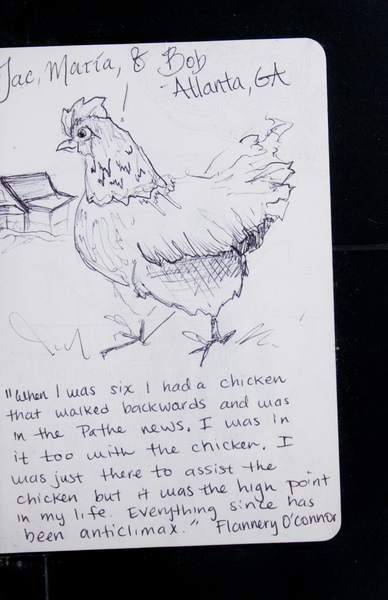 Jac, María, & Bob
Atlanta, GA
"When I was six I had a chicken
that walked backwards and was
in the Pathe news. I was in
it too with the chicken. I
was just there to assist the
chicken but it was the high point
in my life. Everything since has
been anticlimax." Flannery O'Connor